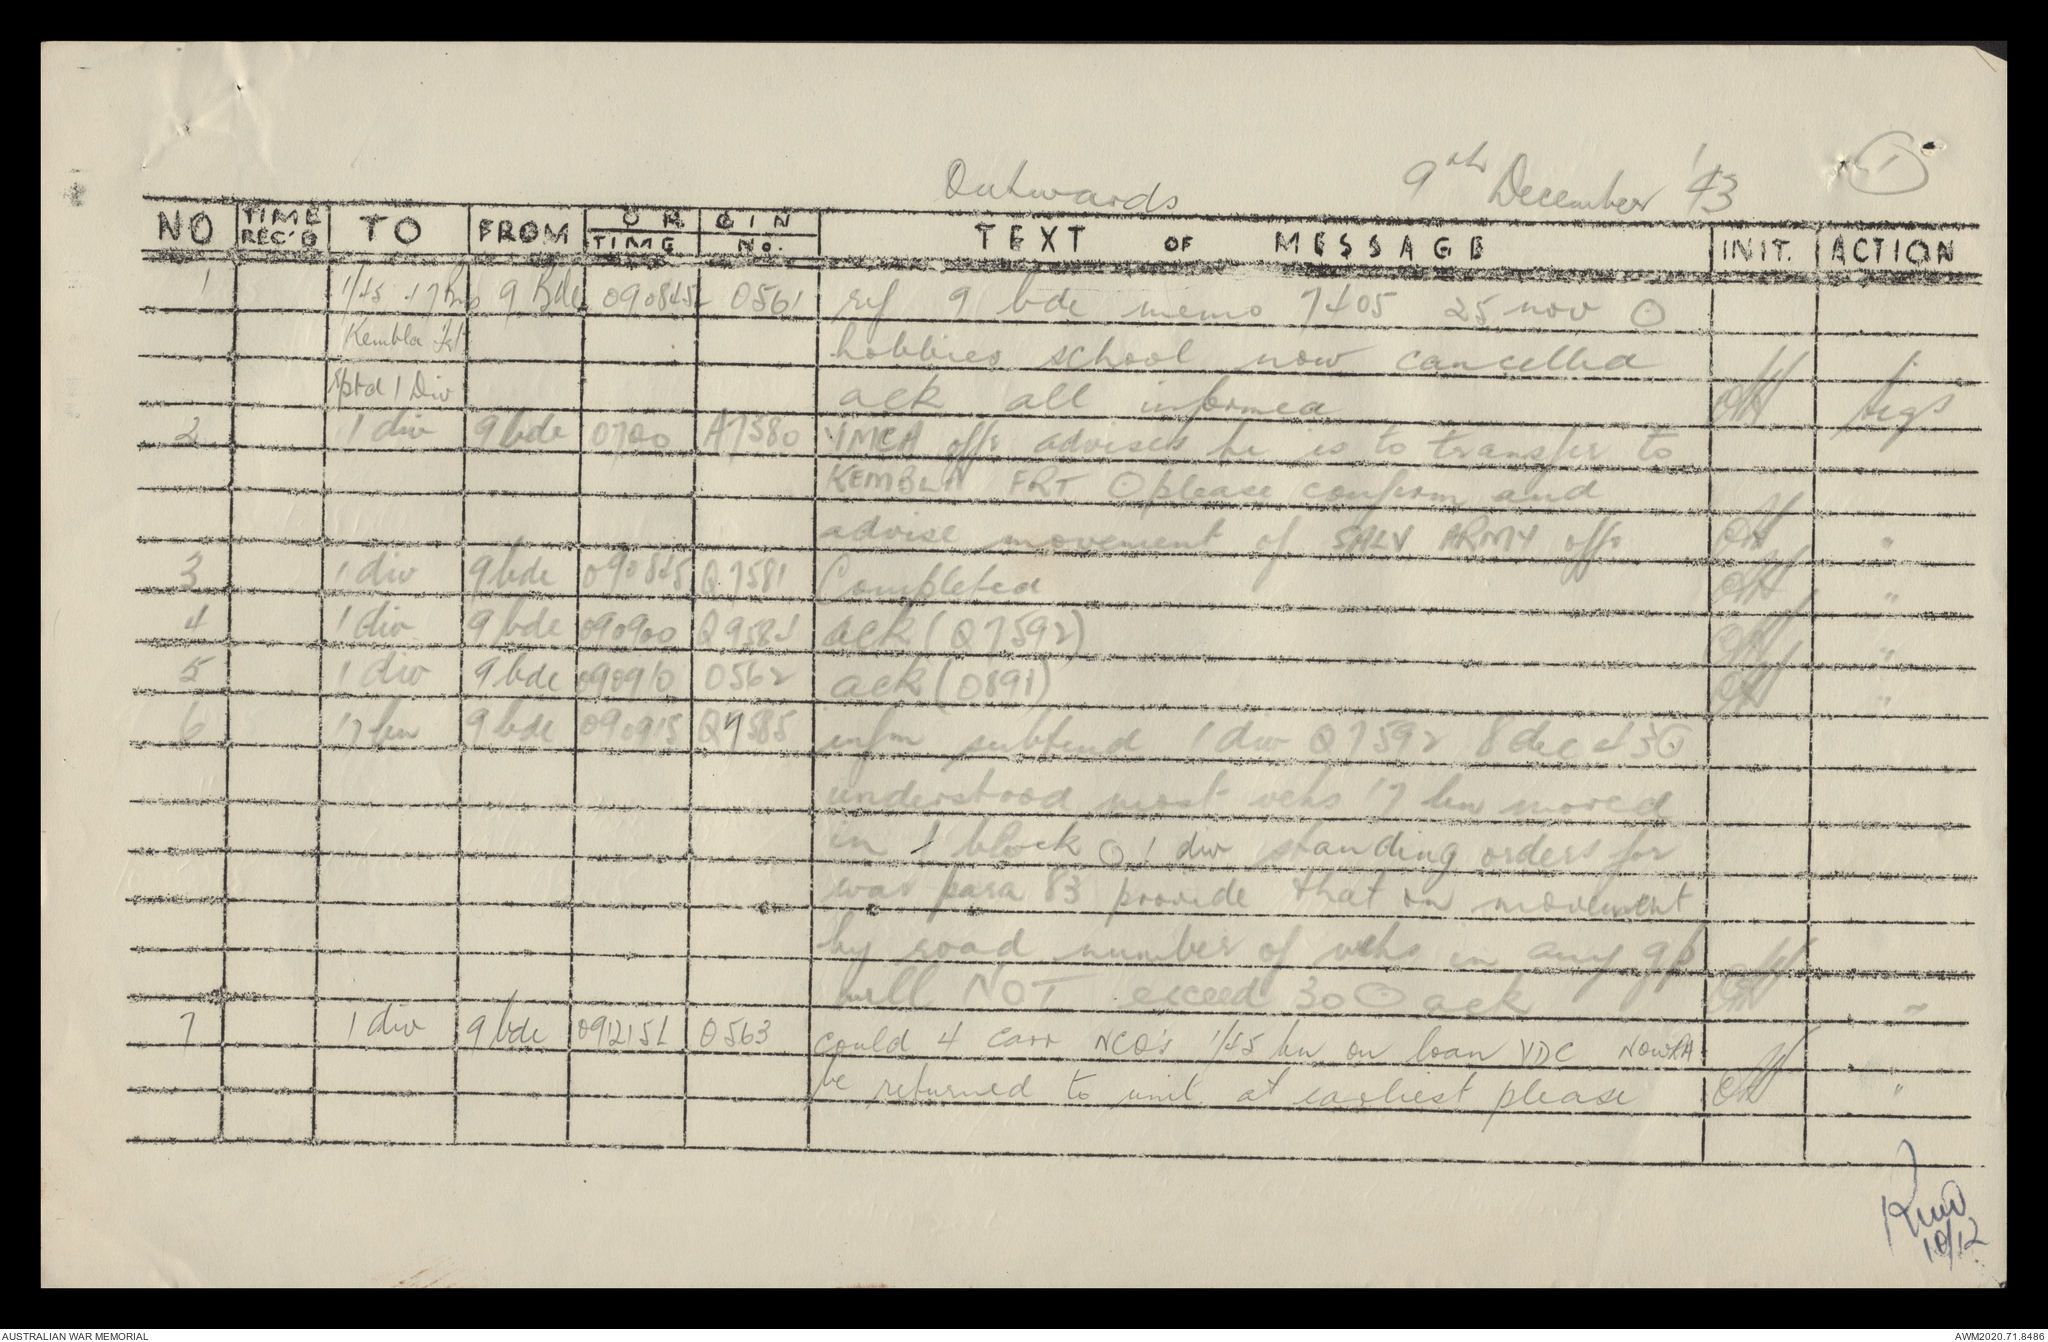 Outwards 9th December '43 1
NO TIME REC'D TO FROM ORIGIN TIME No. TEXT OF MESSAGE INIT. ACTION
1 1/45 17 bns 9 Bde 090845L 0561 ref 9 bde memo 7405 25 nov O
Kembla Frt hobbies school now cancelled
rptd 1 Div ack all informed sigs
2 1 div 9 bde 0700 A7580 YMCA offr advises he is to transfer to
KEMBLA FRT O please confirm and
advise movement of SALV ARMY offr "
3 1 div 9 bde 090845 Q7581 Completed "
4 1 div 9 bde 090900 Q9584 ack (Q7592) "
5 1 div 9 bde 090910 O562 ack (O891) "
6 17 bn 9 bde 090915 Q7585 infm 1 div Q7592 8 dec 43 O
understood most vehs 17 bn moved
in 1 block O 1 div standing orders for
war para 83 provide that on movement
by road number of vehs in any gp
will NOT exceed 30 O ack "
7 1 div 9 bde 091215L O563 could 4 carr NCO's 1/45 bn on loan VDC NOWRA
be returned to unit at earliest please "
10/12
AUSTRALIAN WAR MEMORIAL AWM2020.71.8486